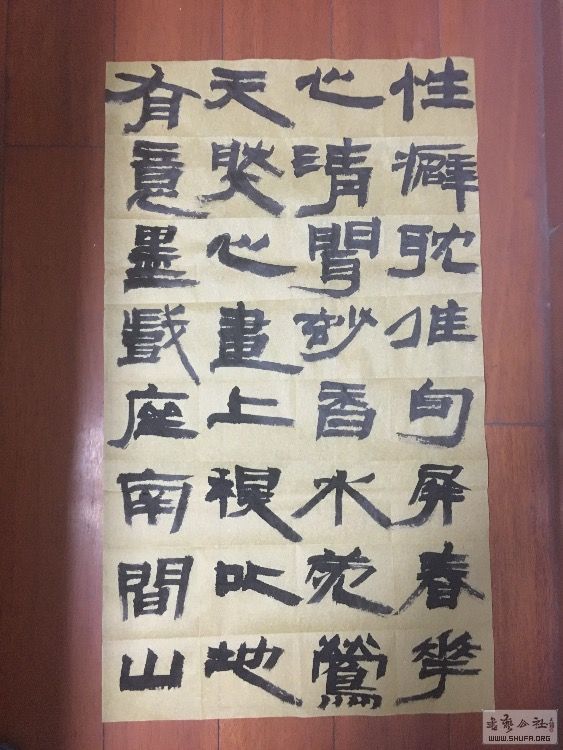 性癖耽佳句屏春華
心清聞妙香水苑鶯
天然心畫上視叱地
有意墨戲座南間山
书艺公社
WWW.SHUFA.ORG